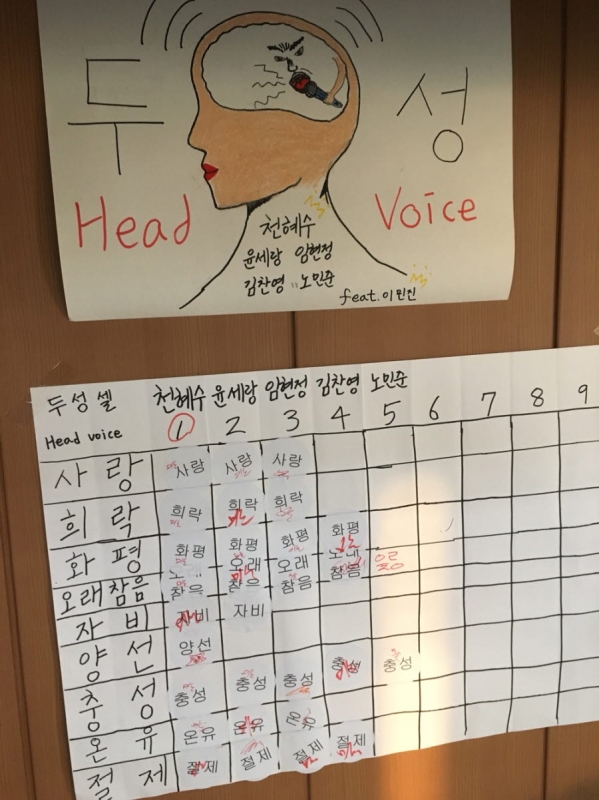 두 성
Head Voice
천혜수
윤세랑 임현정
김찬영 노민준
feat. 이민진
두성셀 천혜수 윤세랑 임현정 김찬영 노민준
Head voice 1 2 3 4 5 6 7 8 9
사랑 사랑 사랑 사랑
희락 희락 희락 희락
화평 화평 화평 화평 화평
오래참음 참음 오래 참음 오래 참음 참음
자비 자비 자비
양선 양선
충성 충성 충성 충성 충성 충성
온유 온유 온유 온유
절제 절제 절제 절제 절제